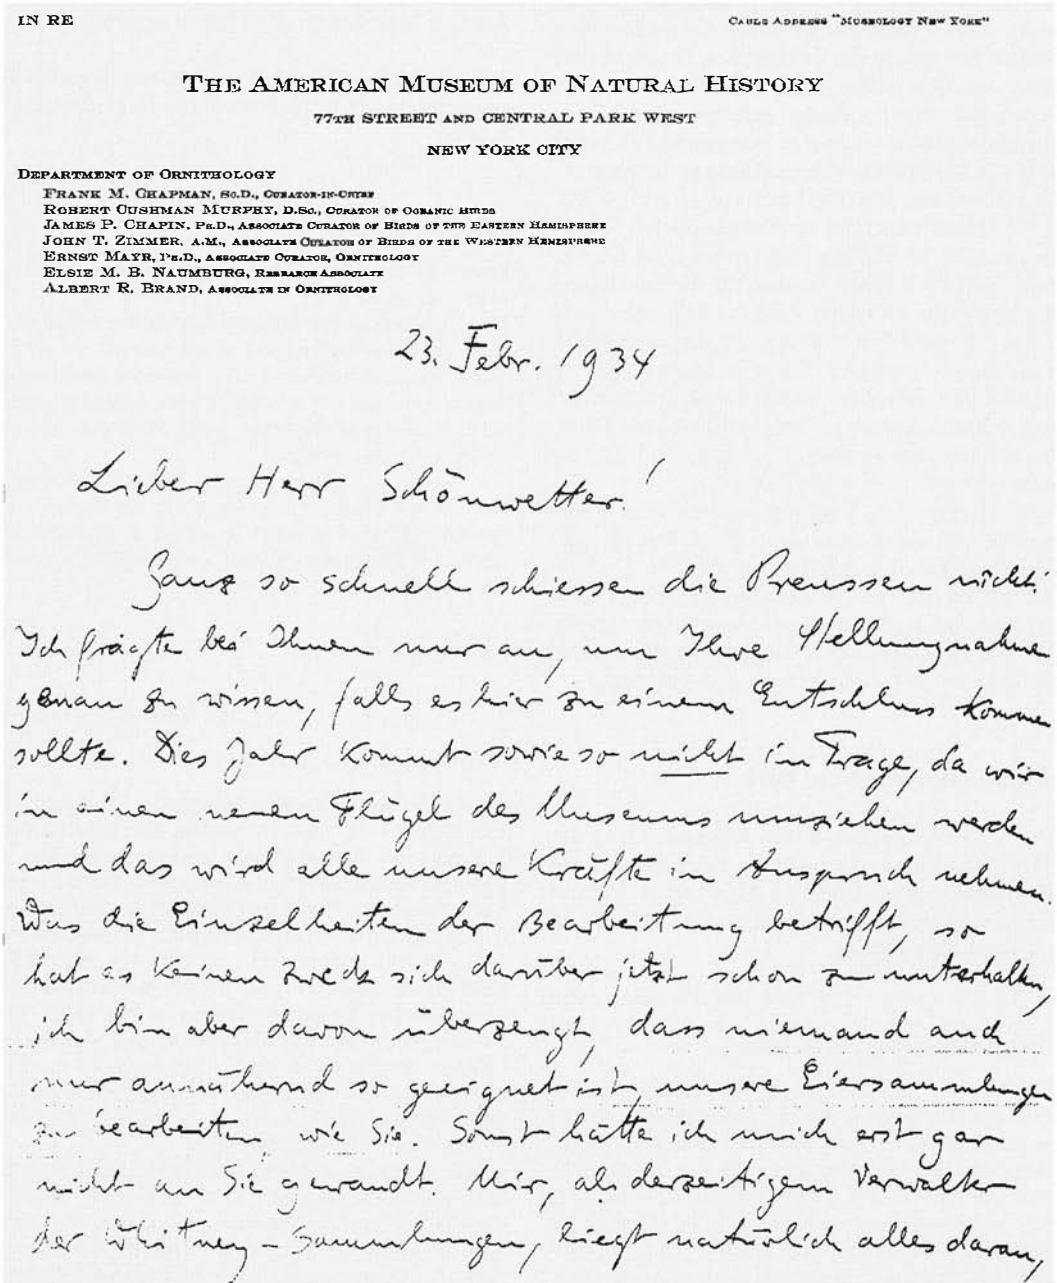 IN RE
CABLE ADDRESS "MUSEOLOGY NEW YORK"
THE AMERICAN MUSEUM OF NATURAL HISTORY
77TH STREET AND CENTRAL PARK WEST
NEW YORK CITY
DEPARTMENT OF ORNITHOLOGY
FRANK M. CHAPMAN, SC.D., CURATOR-IN-CHIEF
ROBERT CUSHMAN MURPHY, D.SC., CURATOR OF OCEANIC BIRDS
JAMES P. CHAPIN, PH.D., ASSOCIATE CURATOR OF BIRDS OF THE EASTERN HEMISPHERE
JOHN T. ZIMMER, A.M., ASSOCIATE CURATOR OF BIRDS OF THE WESTERN HEMISPHERE
ERNST MAYR, PH.D., ASSOCIATE CURATOR, ORNITHOLOGY
ELSIE M. B. NAUMBURG, RESEARCH ASSOCIATE
ALBERT R. BRAND, ASSOCIATE IN ORNITHOLOGY
23. Febr. 1934
Lieber Herr Schönwetter!
Ganz so schnell schiessen die Preussen nicht!
Ich fragte bei Ihnen nur an, um Ihre Stellungnahme
genau zu wissen, falls es hier zu einem Entschluss kommen
sollte. Dies Jahr kommt sowieso nicht in Frage, da wir
in einen neuen Flügel des Museums umziehen werden
und das wird alle unsere Kräfte in Anspruch nehmen.
Was die Einzelheiten der Bearbeitung betrifft, so
hat es keinen Zweck sich darüber jetzt schon zu unterhalten,
ich bin aber davon überzeugt, dass niemand auch
nur annähernd so geeignet ist, unsere Eiersammlungen
zu bearbeiten, wie Sie. Sonst hätte ich mich erst gar
nicht an Sie gewandt. Mir, als derzeitigem Verwalter
der Whitney-Sammlungen, liegt natürlich alles daran,